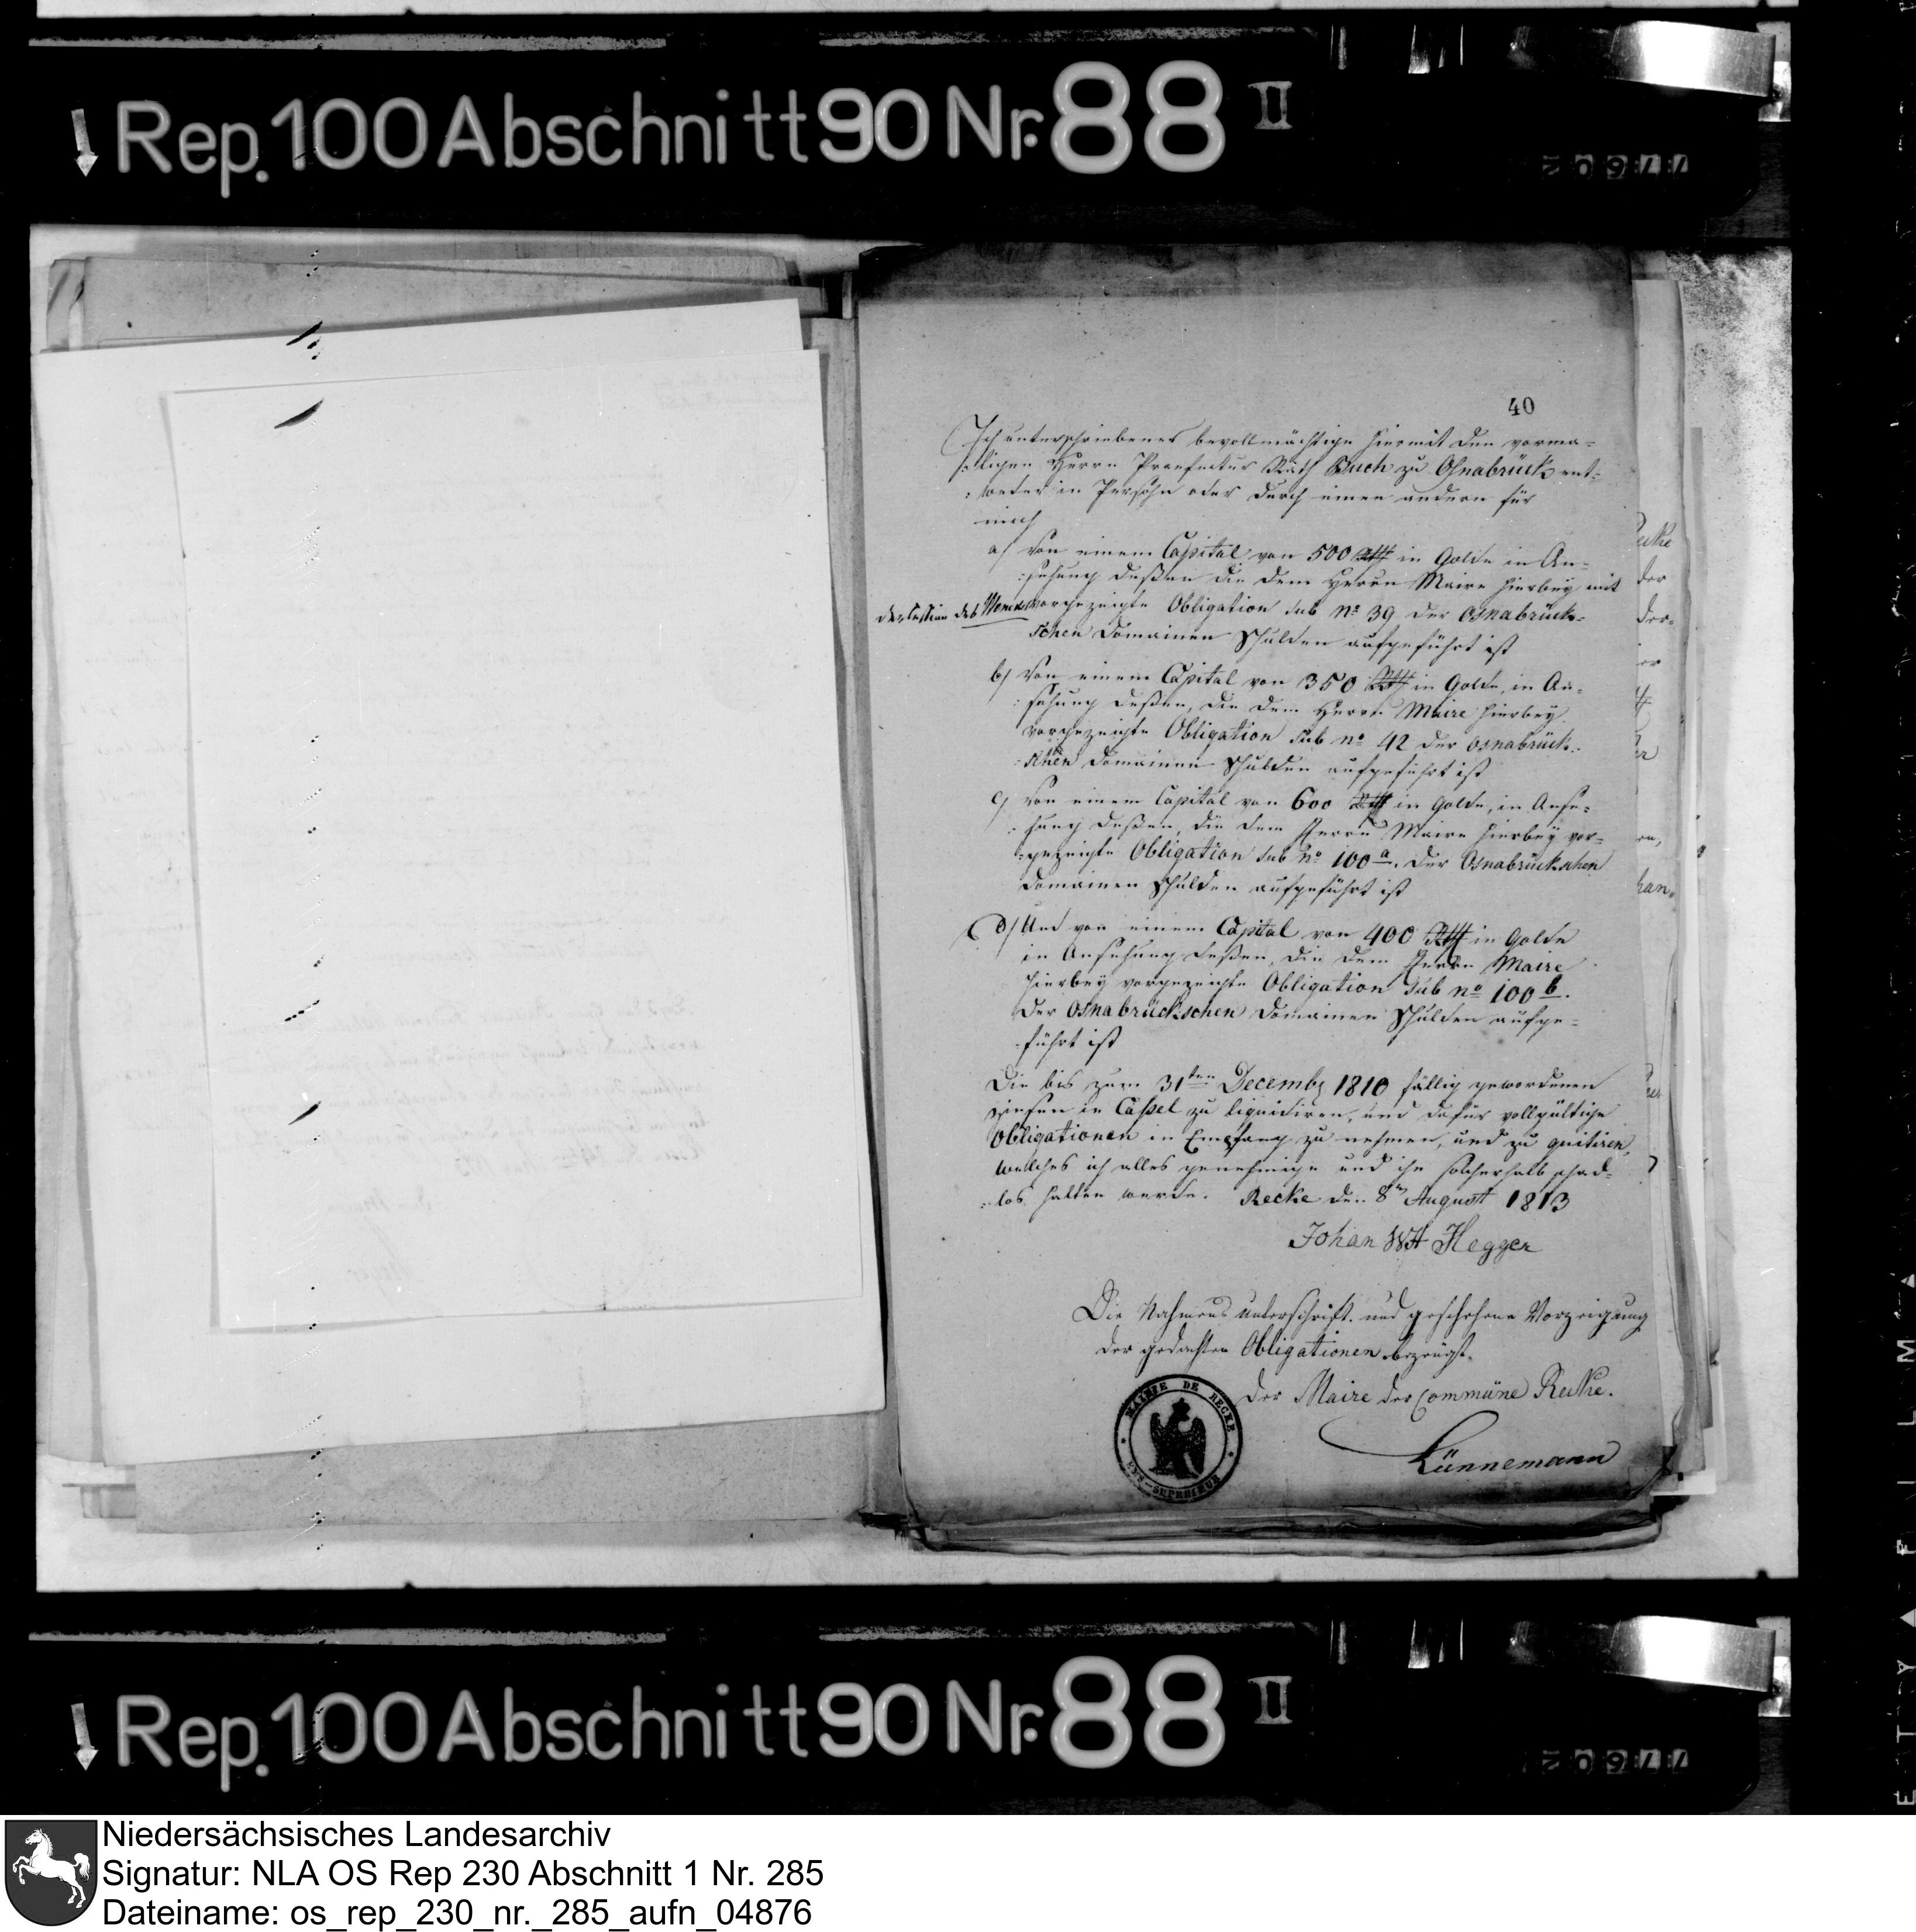 Rep. 100 Abschnitt 90 Nr. 88 II
40
Ich unterschriebener bevollmächtige hiermit den vorma=
=ligen Herrn Praefectur Rath Buch zu Osnabrück ent=
=weder in Persohn oder durch einen andern für
mich
a/ Von einem Capital von 500 Rthl in Golde in An=
=sehung deßen die dem Herrn Maire hierbey mit
der Cession des
vorgezeigte Obligation sub No 39 der Osnabrück=
schen Domainen Schulden aufgeführt ist
b/ Von einem Capital von 350 Rthl in Golde, in An=
=sehung deßen, die dem Herrn Maire hierbey
vorgezeigte Obligation sub no 42 der Osnabrück=
=schen Domainen Schulden aufgeführt ist
c/ Von einem Capital von 600 Rthl in Golde, in Anse=
=hung deßen, die dem Herrn Maire hierbey vor=
=gezeigte Obligation sub no 100 a. der Osnabrückschen
Domainen Schulden aufgeführt ist
d/ Und von einem Capital von 400 Rthl in Golde
in Ansehung deßen, die dem Herrn Maire
hierbey vorgezeigte Obligation sub no 100 b.
der Osnabrückschen Domainen Schulden aufge=
führt ist
Die bis zum 31ten Decembr 1810 fällig gewordenen
Zinsen in Caßel zu liquidiren, und dafür vollgültige
Obligationen in Empfang zu nehmen, und zu quitiren,
welches ich alles genehmige und ihn solcherhalb schad=
=los halten werde. Recke den 8ten August 1813
Johan WH Hegger
Die Nahmens unterschrift und geschehene Vorzeigung
der gedachten Obligationen bezeugt.
Der Maire der Commüne Recke.
Lünnemann
MAIRIE DE RECKE
EMS-SUPERIEUR
Rep. 100 Abschnitt 90 Nr. 88 II
Niedersächsisches Landesarchiv
Signatur: NLA OS Rep 230 Abschnitt 1 Nr. 285
Dateiname: os_rep_230_nr._285_aufn_04876